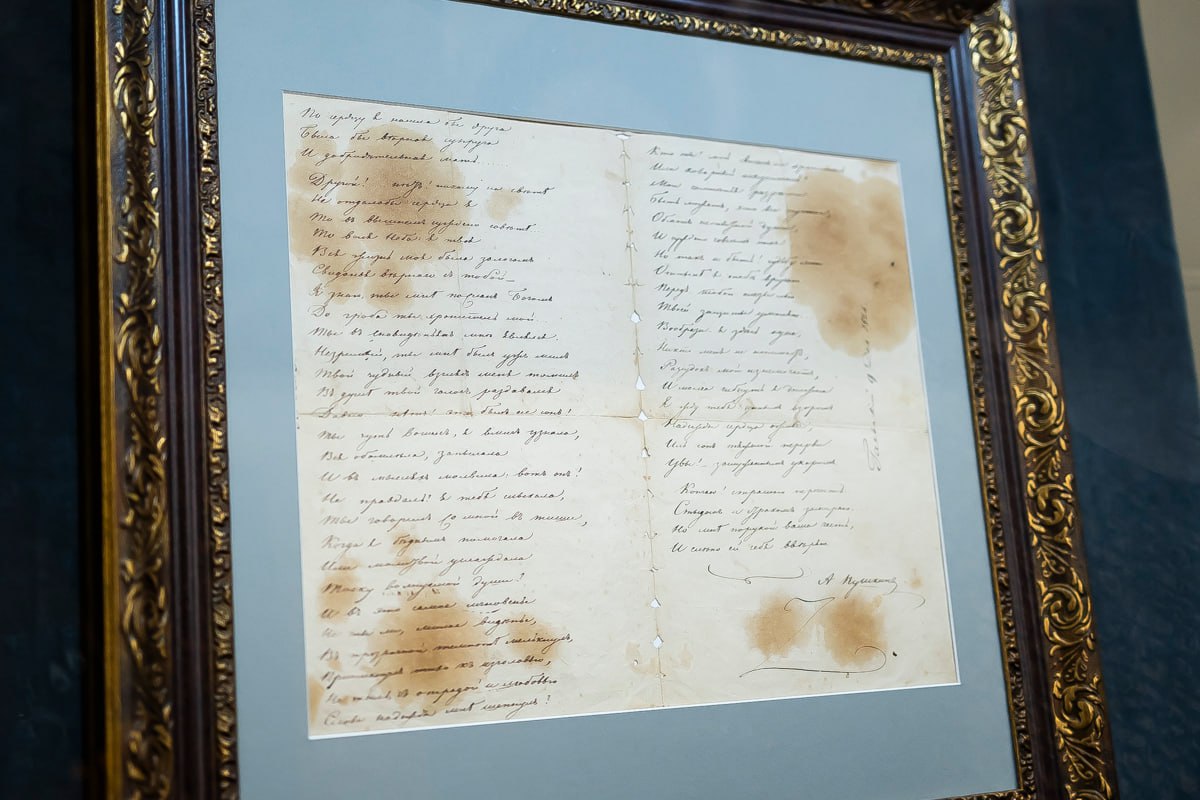 По сердцу я нашла бы друга
Была бы вѣрная супруга
И добродѣтельная мать....
Другой! нѣтъ! никому на свѣтѣ
Не отдалабы сердца я
То въ вышнемъ суждено совѣтѣ
То воля Неба я твоя
Вся жизнь моя была залогомъ
Свиданья вѣрнаго съ тобой
Я знаю, ты мнѣ посланъ Богомъ
До гроба ты хранитель мой...
Ты въ сновидѣньяхъ мнѣ являлся
Незримый, ты мнѣ былъ ужъ милъ
Твой чудный взглядъ меня томилъ
Въ душѣ твой голосъ раздавался
Давно нѣтъ! это былъ не сонъ!
Ты чуть вошелъ, я вмигъ узнала,
Вся обомлѣла, запылала
И въ мысляхъ молвила вотъ онъ!
Не правдаль? я тебя слыхала,
Ты говорилъ со мной въ тиши,
Когда я бѣднымъ помогала
Или молитвой услаждала
Тоску волнуемой души?
И въ это самое мгновенье
Не ты ли, милое видѣнье,
Въ прозрачной темнотѣ мелькнулъ,
Приникнулъ тихо къ изголовью,
Не ты ль съ отрадой и любовью
Слова надежды мнѣ шепнулъ?
Кто ты? мой ангелъ ли хранитель
Или коварный искуситель,
Мои сомнѣнья разрѣши
Быть можетъ, это все пустое,
Обманъ неопытной души,
И суждено совсѣмъ иное
Но такъ и быть! судьбу мою
Отнынѣ я тебѣ вручаю
Передъ тобою слезы лью
Твоей защиты умоляю
Вообрази я здѣсь одна,
Никто меня не понимаетъ,
Разсудокъ мой изнемогаетъ,
И молча гибнуть я должна
Я жду тебя единымъ взоромъ
Надежды сердца оживи,
Иль сонъ тяжелый перерви
Увы! заслуженнымъ укоромъ
Кончаю! страшно перечесть
Стыдомъ и страхомъ замираю
Но мнѣ порукой ваша честь,
И смѣло ей себя ввѣряю
А Пушкинъ